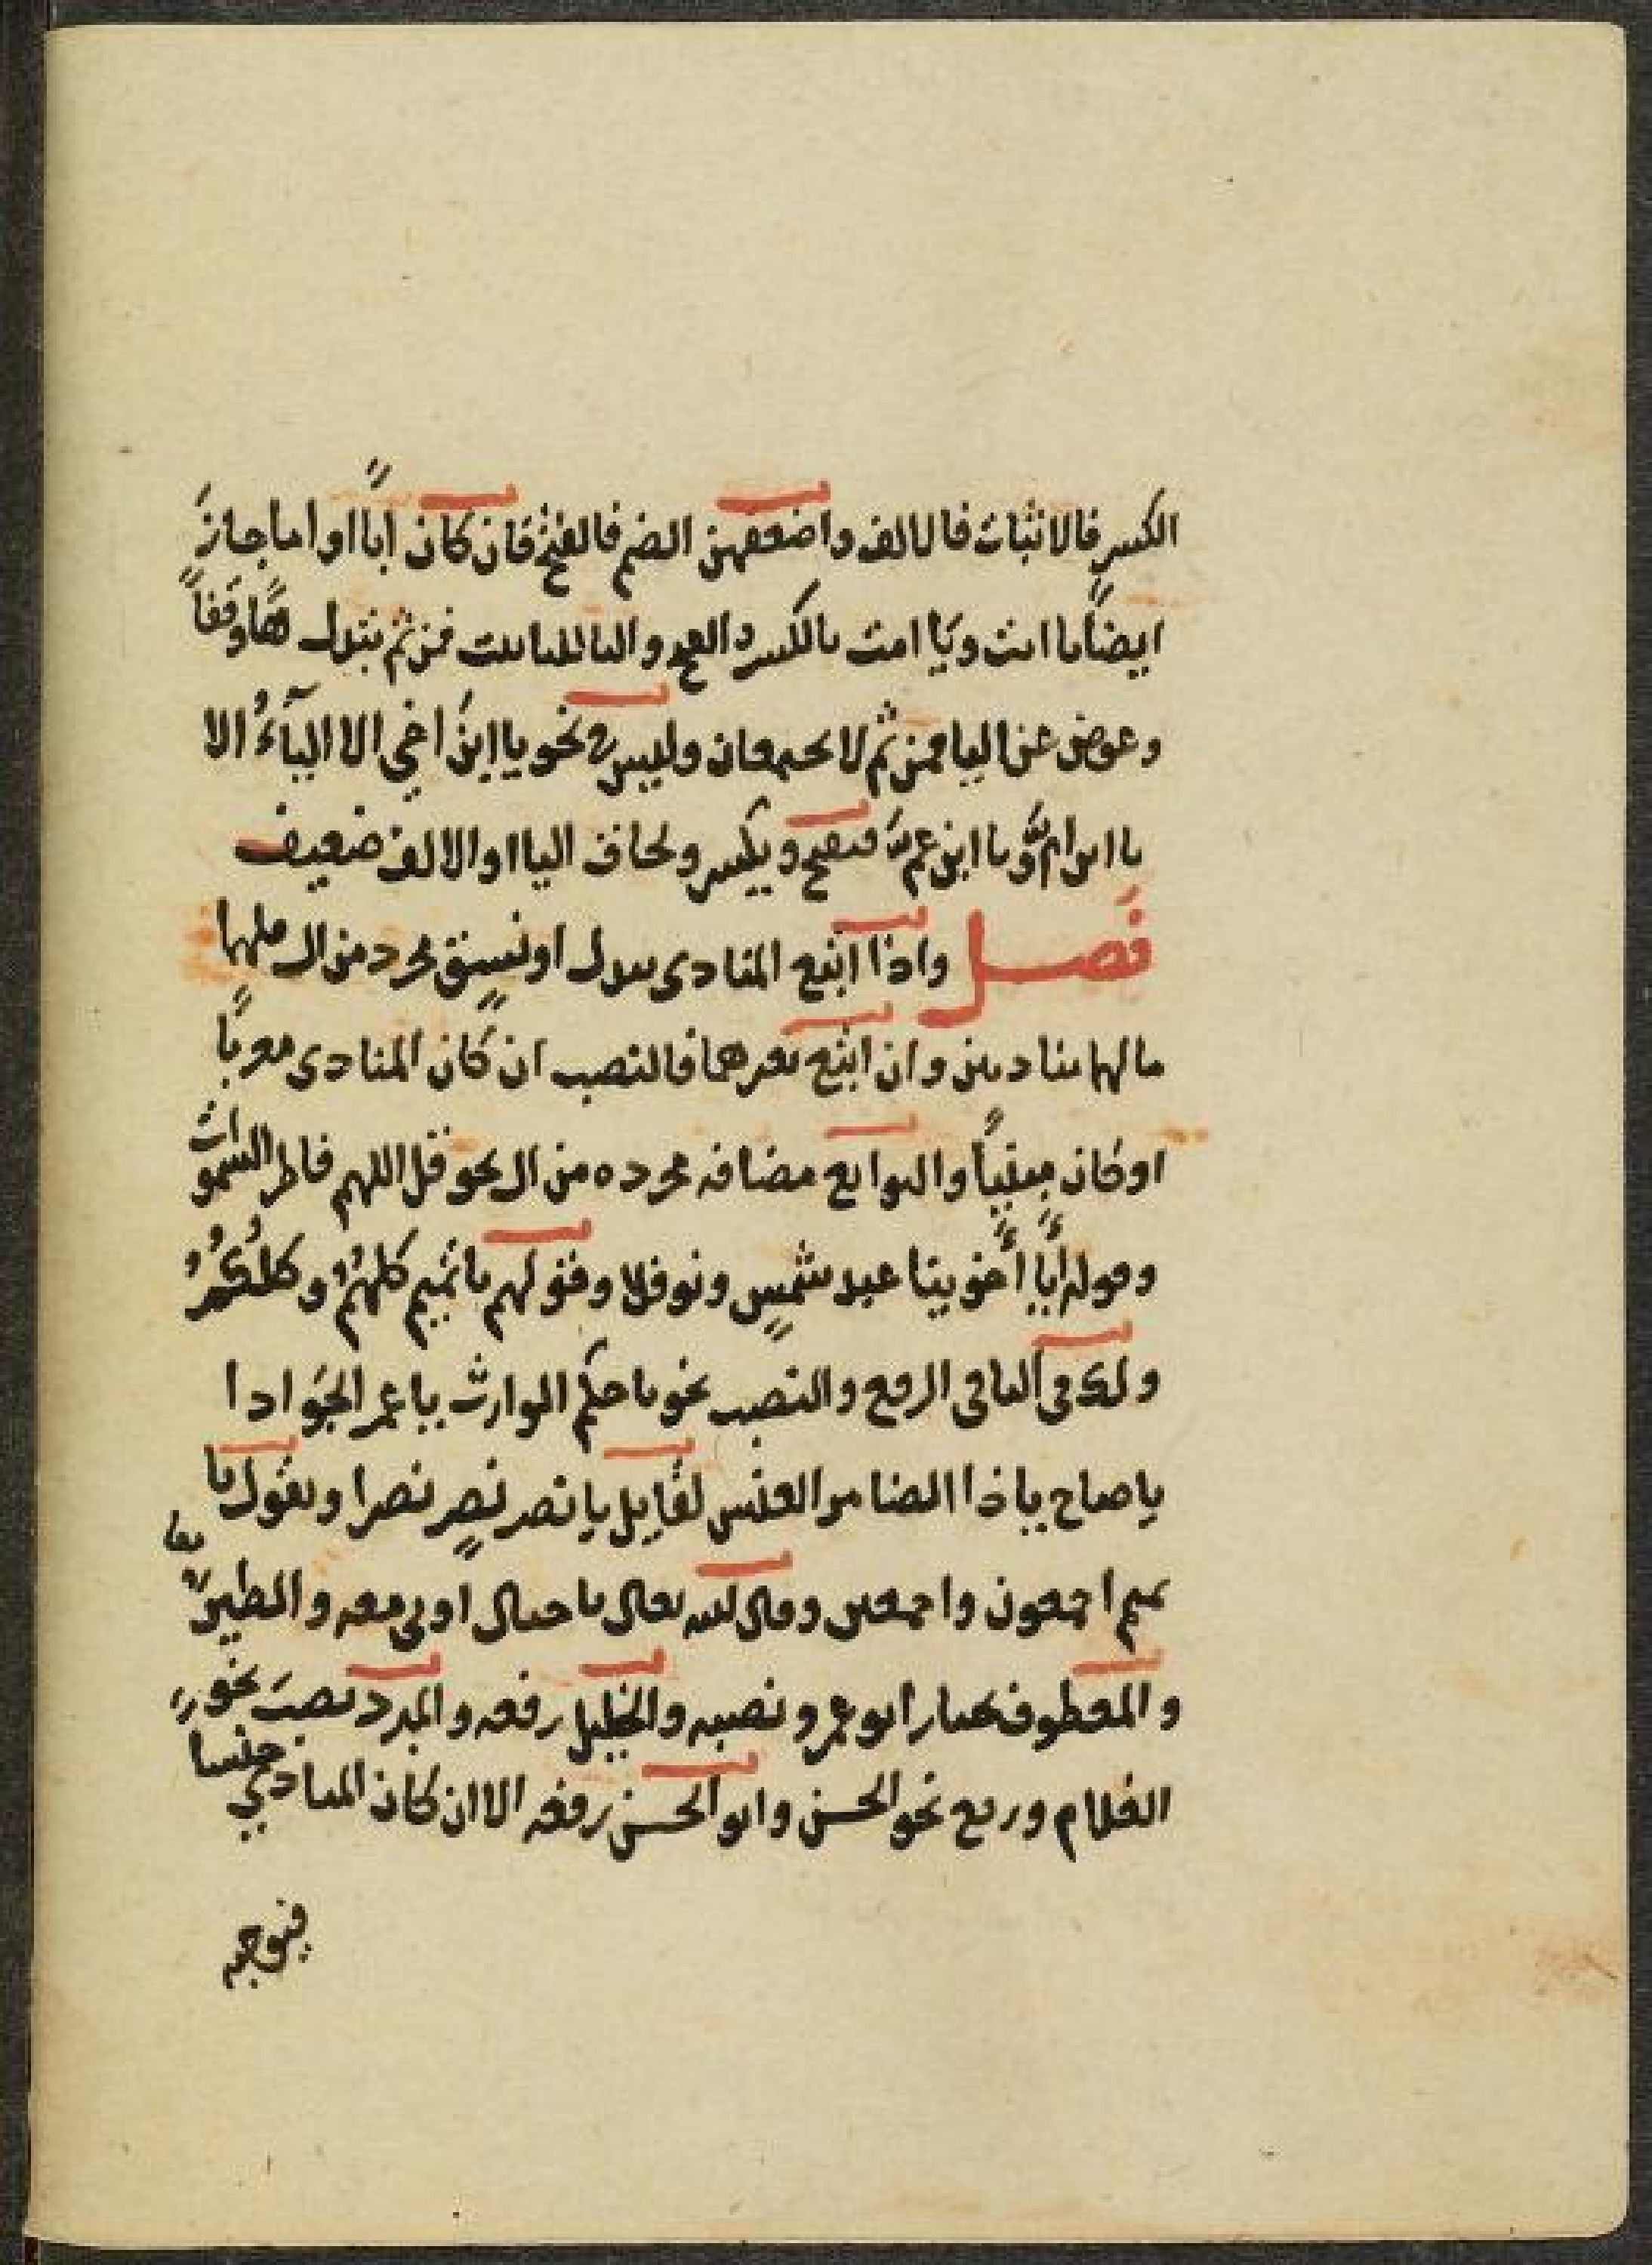 الكسر فالاثبات فالالف واضعفهن الضم فالفتح فان كان ابا او اما جاز
ايضا يا ابت ويا امت بالكسر والفتح والتا للتانيث فمن ثم تبدل هاء وقفا
وعوض عن اليا فمن ثم لا يجتمعان وليس في نحو يا ابن اخي الا الياء الا
يا ابن ام ويا ابن عم فتفتح ويكسر ولحاق اليا او الالف ضعيف
فصل واذا اتبع المنادى ببدل او نسق مجرد من ال فلهما
ما لهما مناديين وان اتبع بغيرهما فالنصب ان كان المنادى معربا
او كان مبنيا والتوابع مضافه مجرده من ال نحو قل اللهم فاطر السموات
وقوله أيا أخوينا عبد شمس ونوفلا وقولهم يا تميم كلهم وكلكم
ولك في الباقي الرفع والنصب نحو يا حكم الوارث يا عمر الجوادا
يا صاح يا ذا الضامر العنس لقايل يا نصر نصر نصرا وتقول يا
تميم اجمعون واجمعين وقال الله تعالى يا جبال اوبي معه والطير
والمعطوف يختار ابو عمرو نصبه والخليل رفعه والمبرد نصب نحو
الغلام ورفع نحو الحسن وابو الحسن رفعه الا ان كان المنادى جنسا